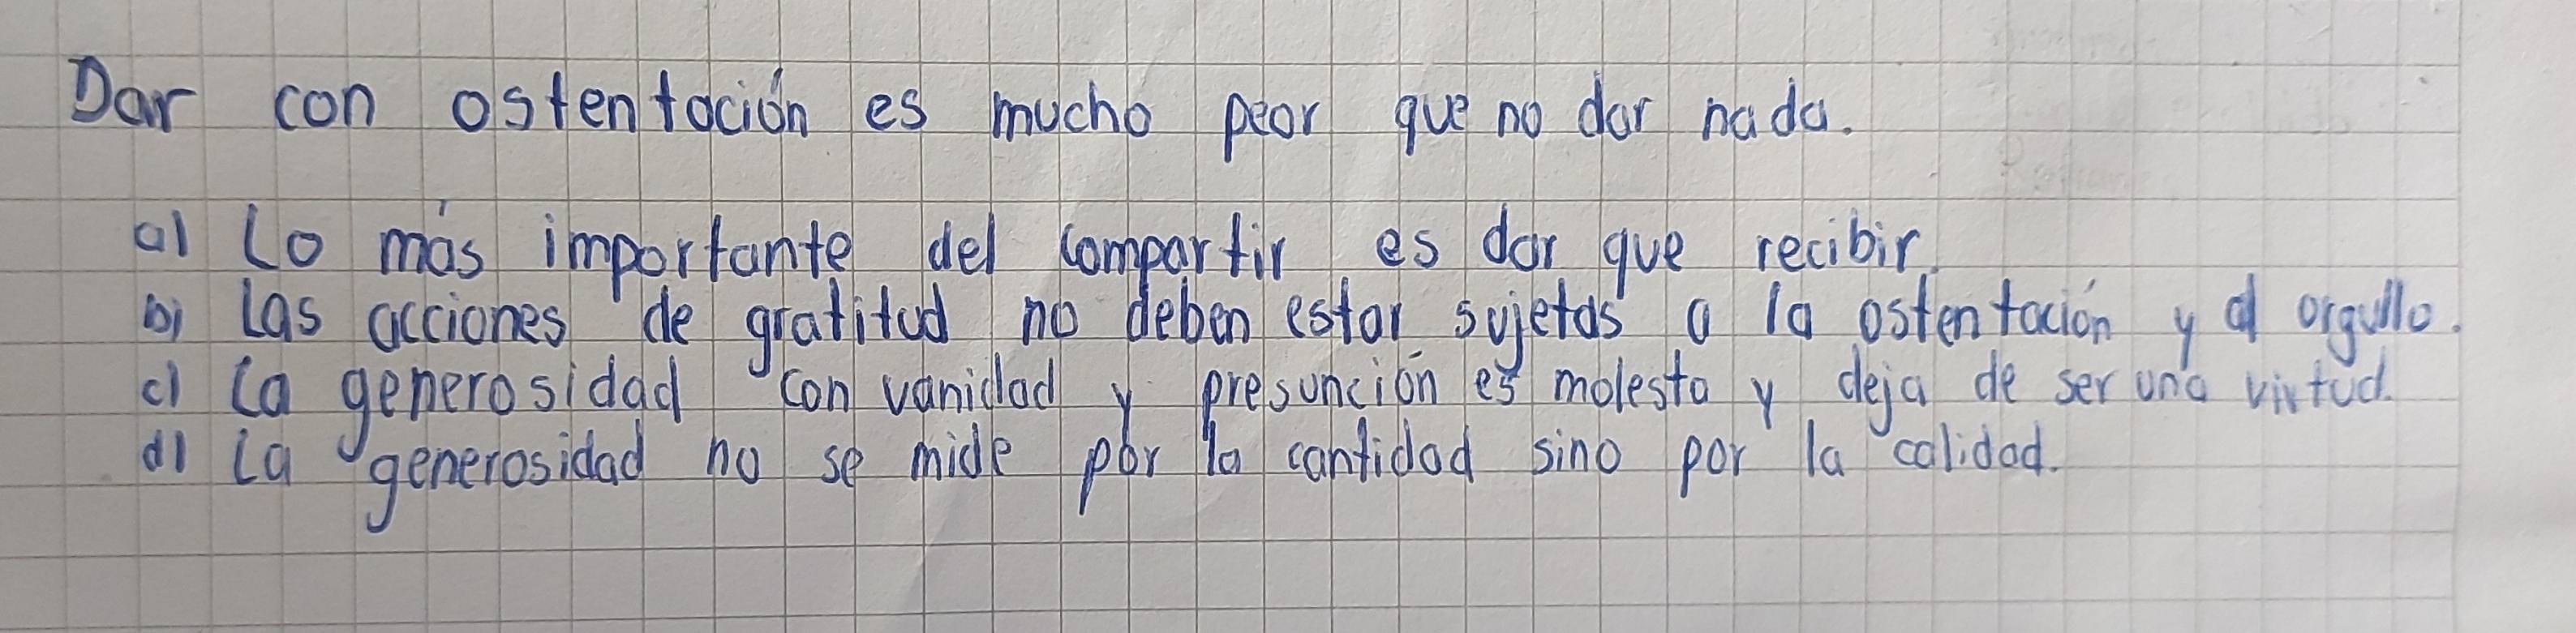 Dar con ostentación es mucho peor que no dar nada.
a) Lo más importante del compartir es dar que recibir.
b) Las acciones de gratitud no deben estar sujetas a la ostentación y al orgullo.
c) La generosidad con vanidad y presunción es molesta y deja de ser una virtud.
d) La generosidad no se mide por la cantidad sino por la calidad.